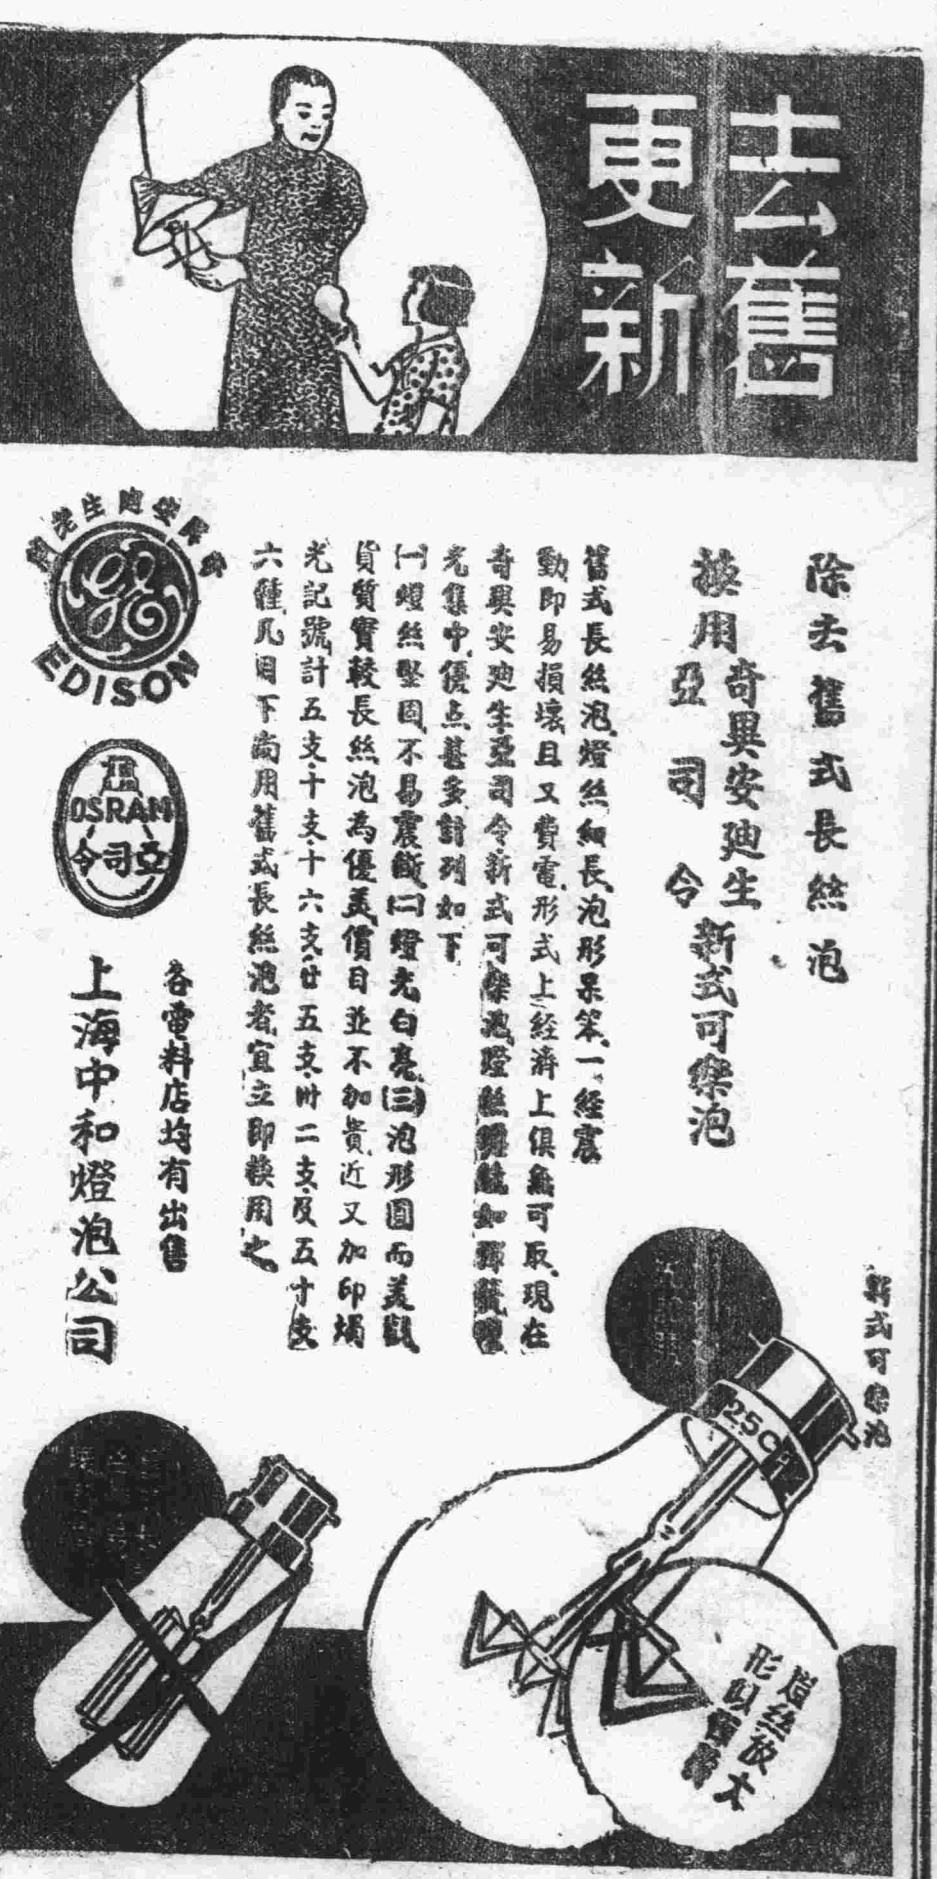 去舊
更新
除去舊式長絲泡
換用
奇異安廸生
亞司令
新式可樂泡
舊式長絲泡、燈絲細長、泡形呆笨、一經震
動即易損壞、且又費電、形式上經濟上俱無可取、現在
奇異安廸生亞司令新式可樂泡燈絲
光集中、優点甚多、計列如下
(一)燈絲堅固、不易震斷(二)燈光白亮(三)泡形圓而美觀
貨質實較長絲泡為優美、價目並不加貴、近又加印燭
光記號、計五支、十支、十六支、廿五支、卅二支、及五十支
六種、凡用下尚用舊式長絲泡者、宜立即換用之、
EDISON
OSRAM
亞司令
各電料店均有出售
上海中和燈泡公司
新式可樂泡
25C
燈絲放大
形似